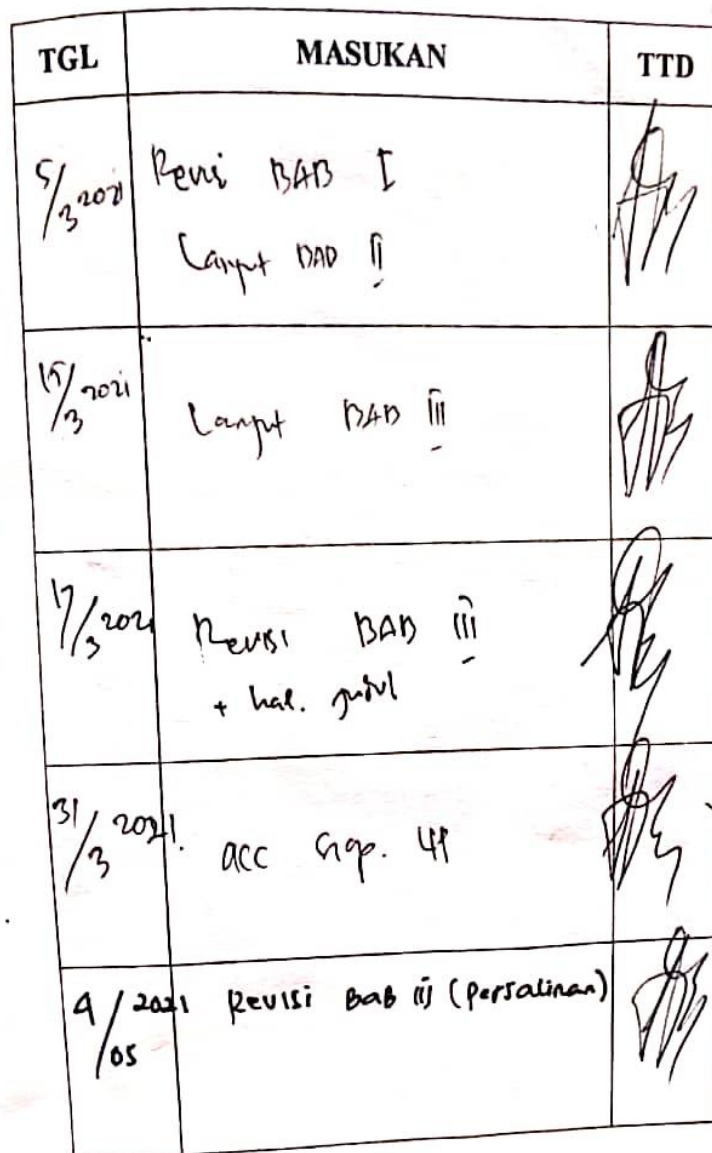 TGL MASUKAN TTD
5/3 2021 Revisi BAB I
Lanjut BAB II
15/3 2021 Lanjut BAB III
17/3 2021 Revisi BAB III
+ hal. judul
31/3 2021. acc
4/05 2021 Revisi BaB iij (persalinan)